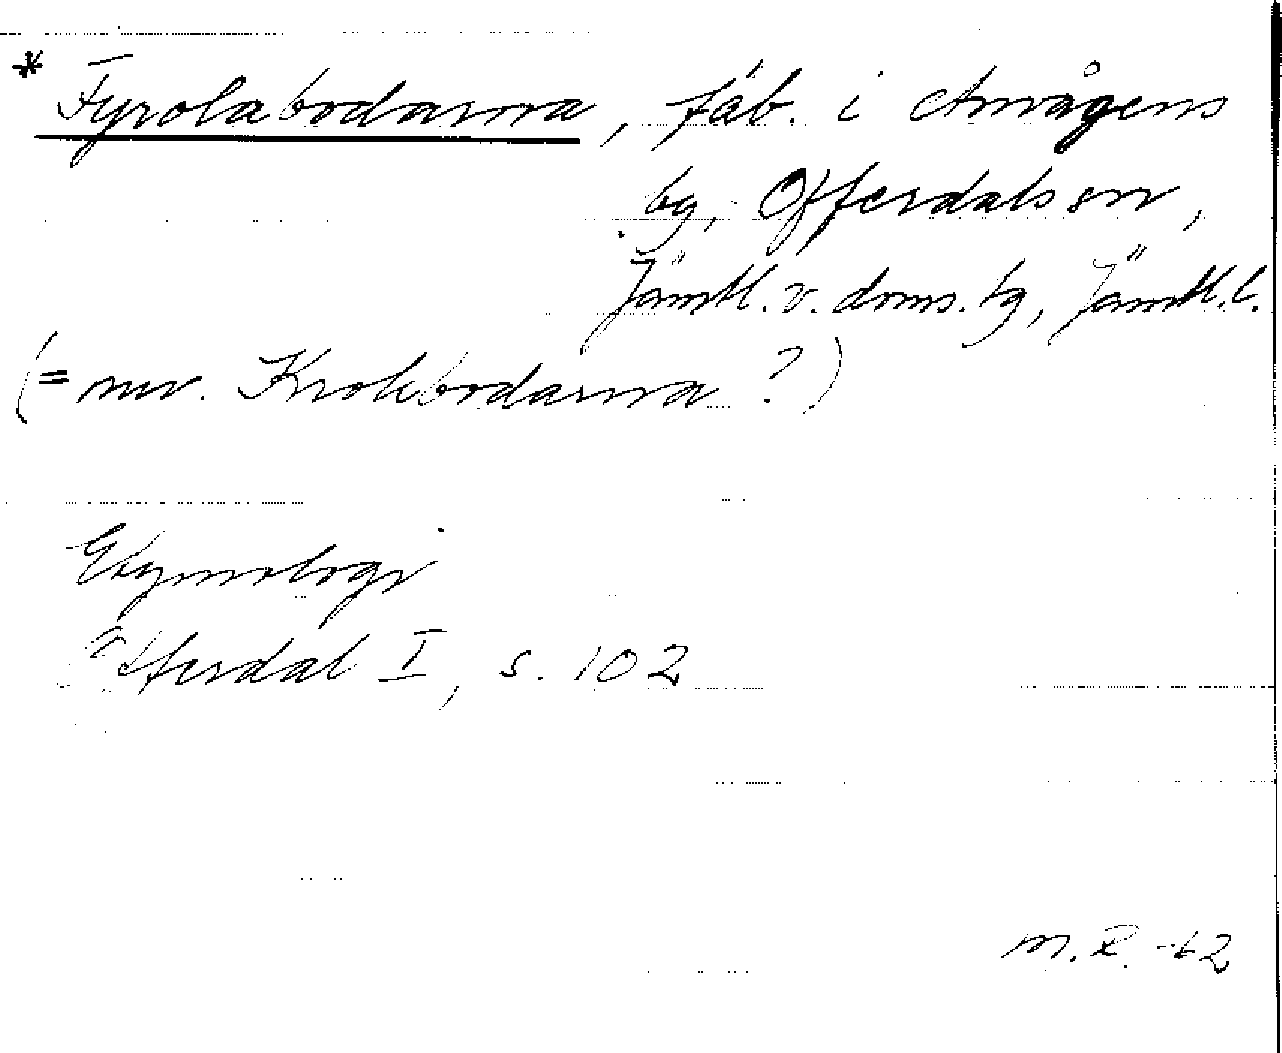 * Fyrolabodarna, fäb. i Änvågens
bg, Offerdals sn,
Jämtl. v. doms. tg, Jämtl. l.
(= nuv. Krokbodarna ?)
Etymologi
Offerdal I, s. 102
M. R. -62